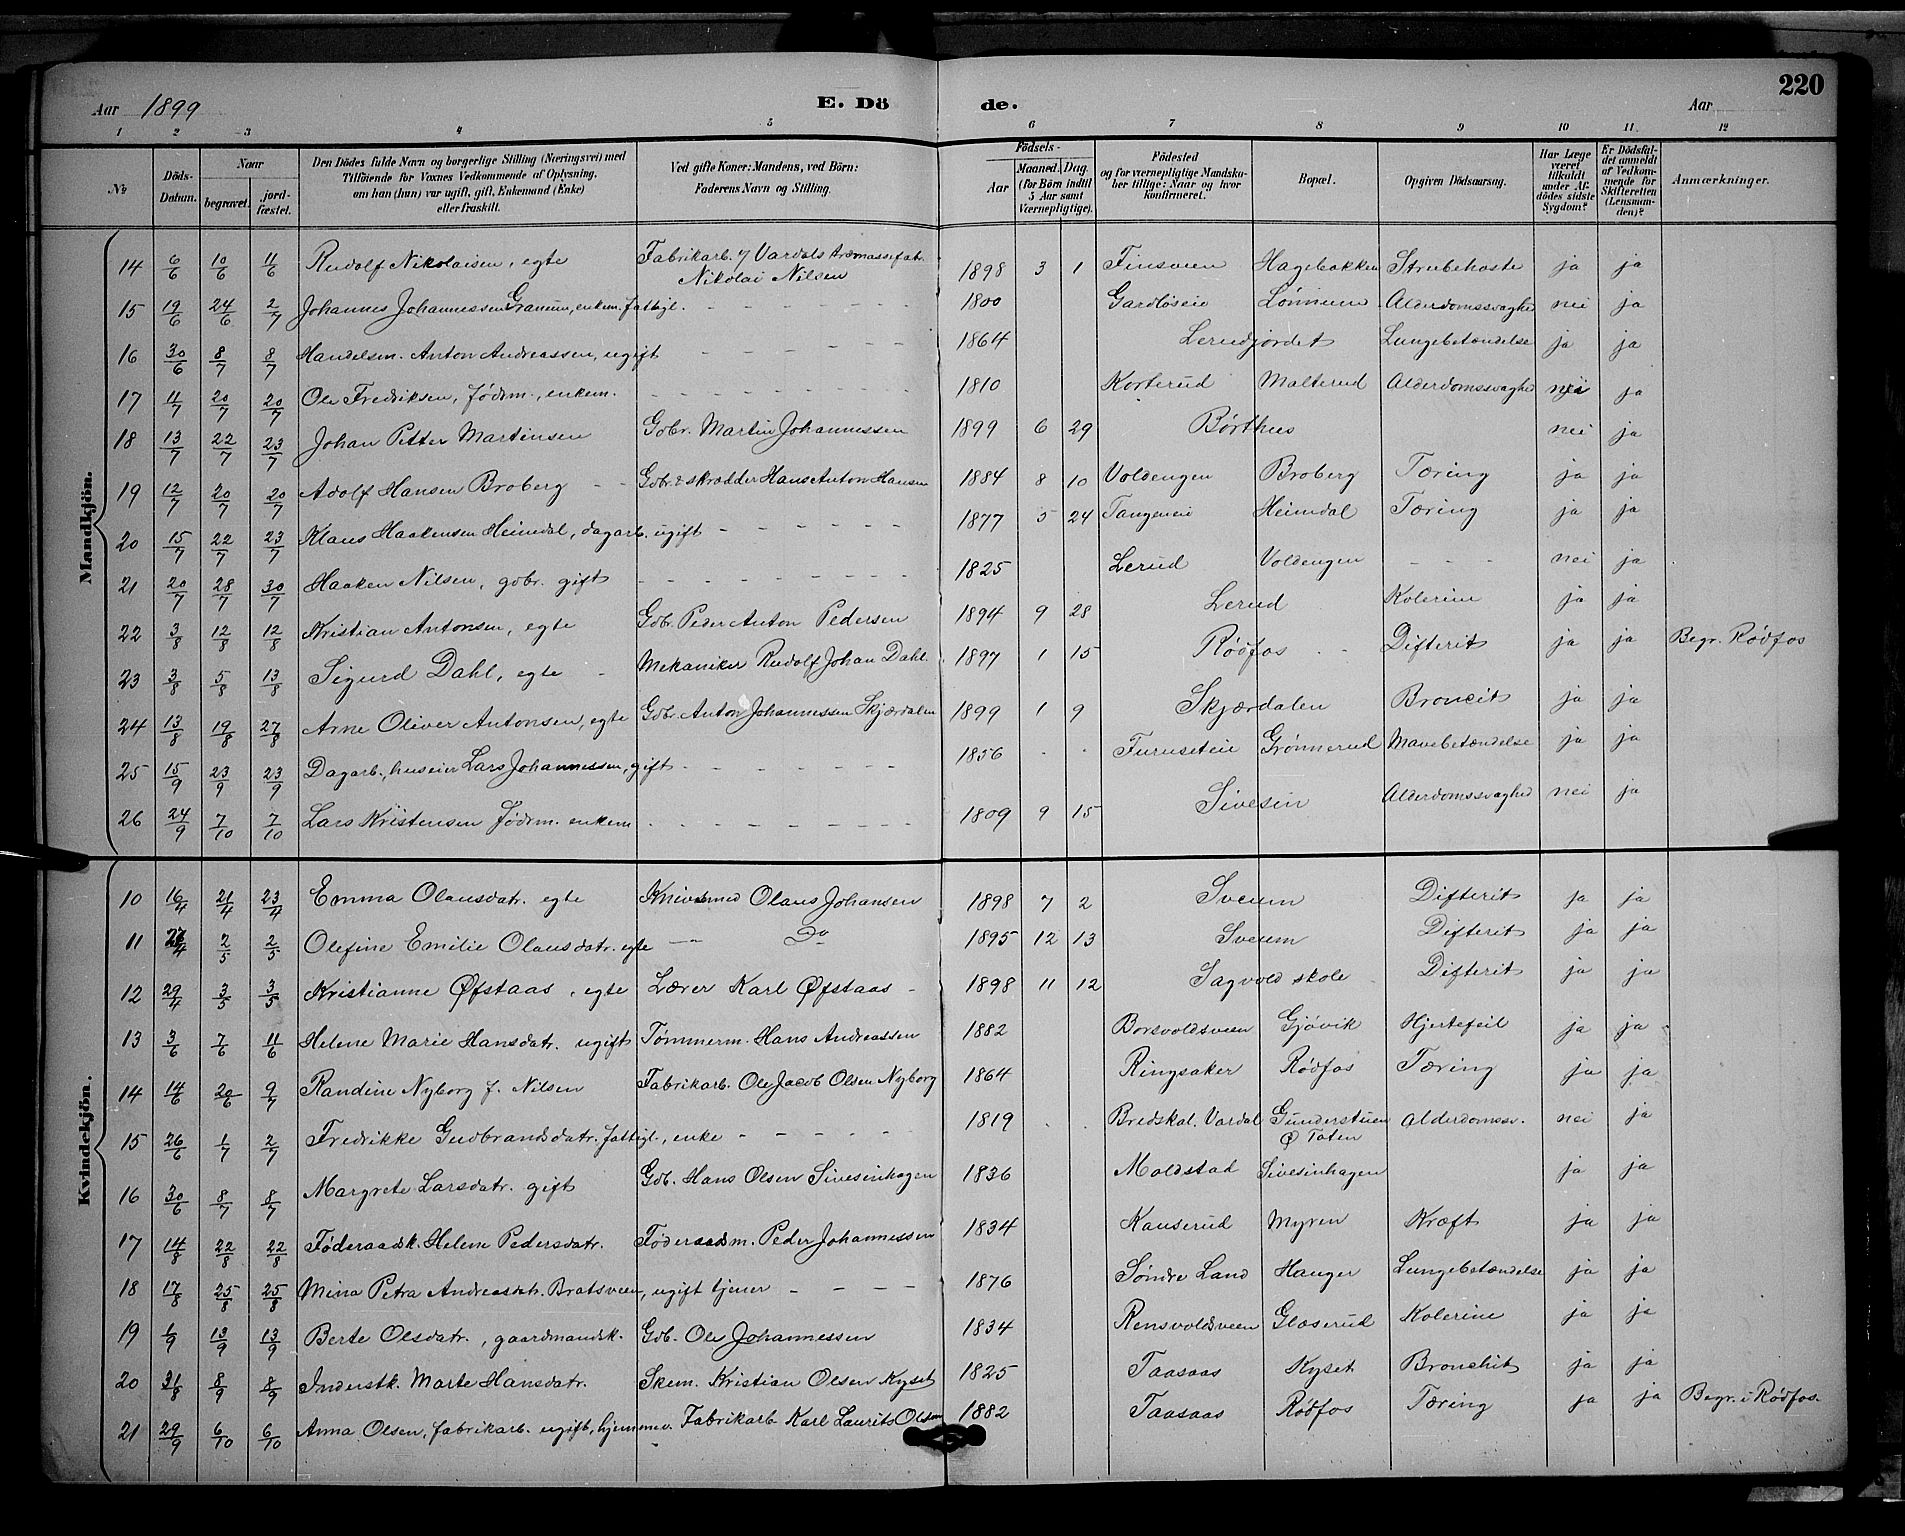 Aar 1899 E. Dö de. Aar 220
1 2 3 4 5 6 7 8 9 10 11. 12
No
Döds-Datum.
Naar
begravet.
jordfæstet.
Den Dödes fulde Navn og borgerlige Stilling (Næringsvei) med
Tilföiende for Voxnes Vedkommende af Oplysning,
om han (hun) var ugift, gift, Enkemand (Enke)
eller fraskilt.
Ved gifte Koner: Mandens, ved Börn:
Faderens Navn og Stilling.
Födsels-
Aar
Maaned. Dag.
(for Börn indtil
5 Aar samt
Værnepligtige).
Födested
og for værnepligtige Mandskaber tillige: Naar og hvor
konfirmeret.
Bopæl.
Opgiven Dödsaarsag.
Har Læge
været
tilkaldt
under Afdödes sidste
Sygdom?
Er Dödsfaldet anmeldt
af Vedkommende for
Skifteretten
(Lensmanden)?
Anmærkninger.
Mandkjön.
14 6/6 10/6 11/6 Rudolf Nikolaisen, egte Fabrikarb. v/ Vardals træmassefabr. Nikolai Nilsen 1898 3 1 Finsveen Hagebakken Strubehoste ja ja
15 19/6 24/6 2/7 Johannes Johannessen Granum, enkem. fattigl. 1800 Gardløseie Lønnum Alderdomssvaghed nei ja
16 30/6 8/7 8/7 Handelsm. Anton Andreassen, ugift 1864 Lerudjordet Lungebetændelse ja ja
17 11/7 20/7 20/7 Ole Fredriksen, fødrm., enkem. 1810 Korterud Malterud Alderdomssvaghed nei ja
18 13/7 22/7 23/7 Johan Petter Martinsen Gdbr. Martin Johannessen 1899 6 29 Børthus nei ja
19 12/7 20/7 20/7 Adolf Hansen Broberg Gdbr. & skrædder Hans Anton Hansen 1884 8 10 Voldengen Broberg Tæring ja ja
20 15/7 22/7 23/7 Klaus Haakensen Heimdal, dagarb. ugift 1877 5 24 Tangeneie Heimdal Tæring ja ja
21 20/7 28/7 30/7 Haaken Nilsen, gdbr. gift 1825 Lerud Voldengen nei ja
22 3/8 12/8 12/8 Kristian Antonsen, egte Gdbr. Peder Anton Pedersen 1894 9 28 Lerud Kolerine ja ja
23 3/8 5/8 13/8 Sigurd Dahl, egte Mekaniker Rudolf Johan Dahl. 1897 1 15 Rødfos Difterit ja ja Begr. Rødfos
24 13/8 19/8 27/8 Arne Oliver Antonsen, egte Gdbr. Anton Johannessen Skjærdalen 1899 1 9 Skjærdalen Broncit ja ja
25 15/9 23/9 23/9 Dagarb., huseier Lars Johannessen, gift 1856 Furuseteie Grønnerud Mavebetændelse ja ja
26 24/9 7/10 7/10 Lars Kristensen Fødrm. enkem 1809 9 15 Sivesin Alderdomssvaghed nei ja
Kvindekjön.
10 16/4 21/4 23/4 Emma Olausdatr. egte Knivsmed Olaus Johansen 1898 7 2 Svesem Difterit ja ja
11 27/4 2/5 2/5 Olefine Emilie Olausdatr. egte Do 1895 12 13 Svesem Difterit ja ja
12 29/4 3/5 3/5 Kristianne Øfstaas, egte Lærer Karl Øfstaas 1898 11 12 Sagvold skole Difterit ja ja
13 3/6 7/6 11/6 Helene Marie Hansdatr. ugift Tømmerm. Hans Andreassen 1882 Borsvoldsveen Gjøvik Hjertefeil ja ja
14 14/6 20/6 9/7 Randine Nyborg f. Nilsen Fabrikarb. Ole Jacob Olsen Nyborg 1864 Ringsaker Rødfos Tæring ja ja
15 26/6 1/7 2/7 Fredrikke Gudbrandsdatr. fattigl., enke 1819 Bredskal. Vardal Gunderstuen Ø Toten Alderdomssv. nei ja
16 30/6 8/7 8/7 Margrete Larsdatr. gift Gdb. Hans Olsen Sivesinhagen 1836 Moldstad Sivesinhagen ja ja
17 14/8 22/8 22/8 Føderaadsk. Helene Pedersdatr. Føderaadsm. Peder Johannessen 1834 Kauserud Myren Kræft ja ja
18 17/8 25/8 25/8 Mina Petra Andreasdatr. Bratsveen, ugift tjener 1876 Søndre Land Hanger Lungebetændelse ja ja
19 1/9 13/9 13/9 Berte Olsdatr., gaardmandsk. Gdb. Ole Johannessen 1834 Rensvoldsveen Glæserud Kolerine ja ja
20 31/8 8/9 8/9 Inderstk. Marte Hansdatr. Skem. Kristian Olsen Kyset 1825 Taasaas Kyset Bronchit ja ja
21 29/9 6/10 6/10 Anna Olsen, fabrikarb. ugift, hjemmev. Fabrikarb. Karl Laurits Olsen 1882 Taasaas Rødfos Tæring ja ja Begr. i Rødfos.